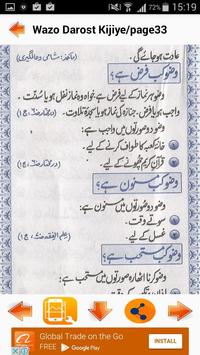 15:19
Wazo Darost Kijiye/page33
عادت ہو جائے گی۔
وضو کب فرض ہے؟
وضو ہر نماز کے لیے فرض ہے، خواہ وہ نماز نفل ہو یا سنت،
واجب ہو یا فرض، جنازہ کی نماز ہو یا سجدۂ تلاوت۔
وضو دو صورتوں میں واجب ہے:
خانہ کعبہ کا طواف کرنے کے لیے۔
قرآن کریم چھونے کے لیے۔
وضو کب مسنون ہے؟
وضو دو صورتوں میں مسنون ہے:
سوتے وقت۔
غسل کے لیے۔
وضو کب مستحب ہے؟
وضو کرنا اٹھارہ صورتوں میں مستحب ہے:
Global Trade on the Go
FREE Google Play
INSTALL